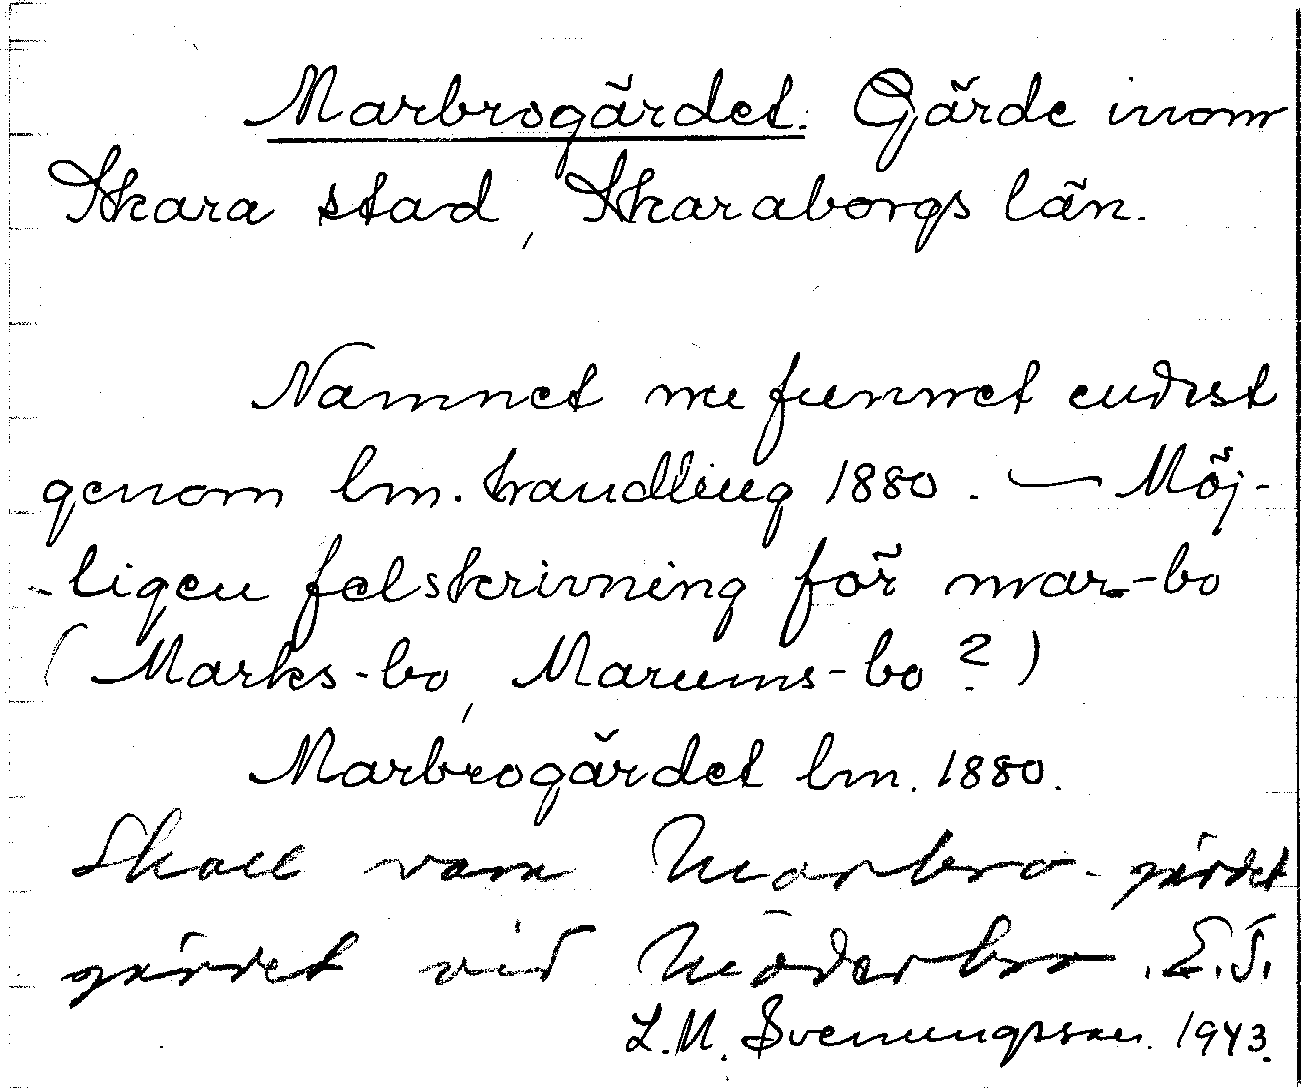 Marbrogärdet. Gärde inom
Skara stad, Skaraborgs län.
Namnet nu funnet endast
genom lm. handling 1880. — Möj-
-ligen felskrivning för mar-bo
(Marks-bo, Marums-bo?)
Marbrogärdet lm. 1880.
Skall vara Morbro-gärdet
gärdet vid Möderbro. E.T.
L.M. Svenungsson. 1943.